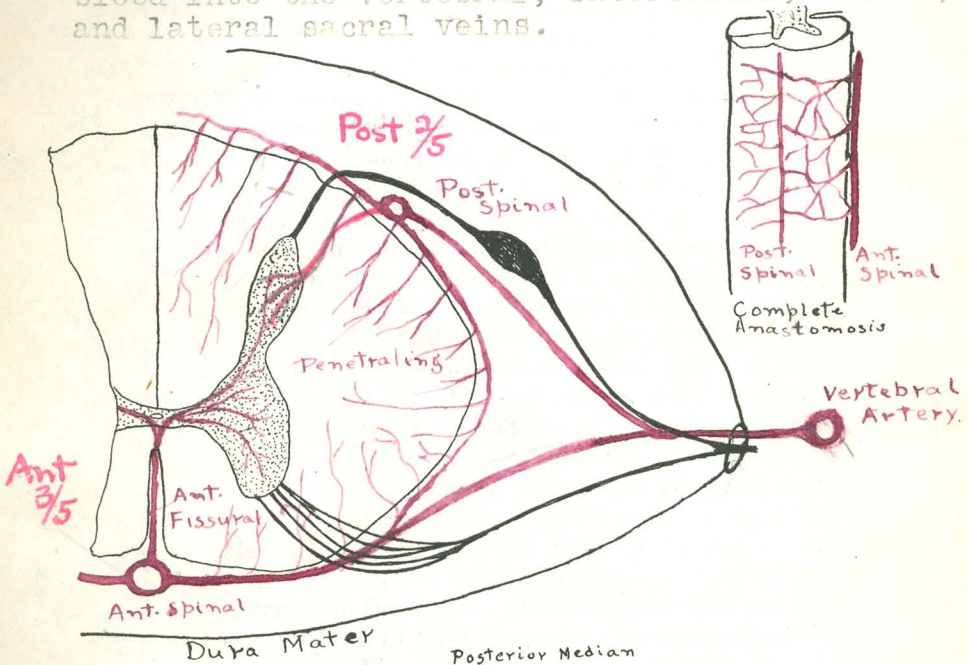 blood into the vertebral,
and lateral sacral veins.
Post 2/5
Post.
Spinal
Post.
Spinal
Ant.
Spinal
Complete
Anastomosis
Penetraling
Vertebral
Artery.
Ant
3/5
Ant.
Fissural
Ant. Spinal
Dura Mater
Posterior Median